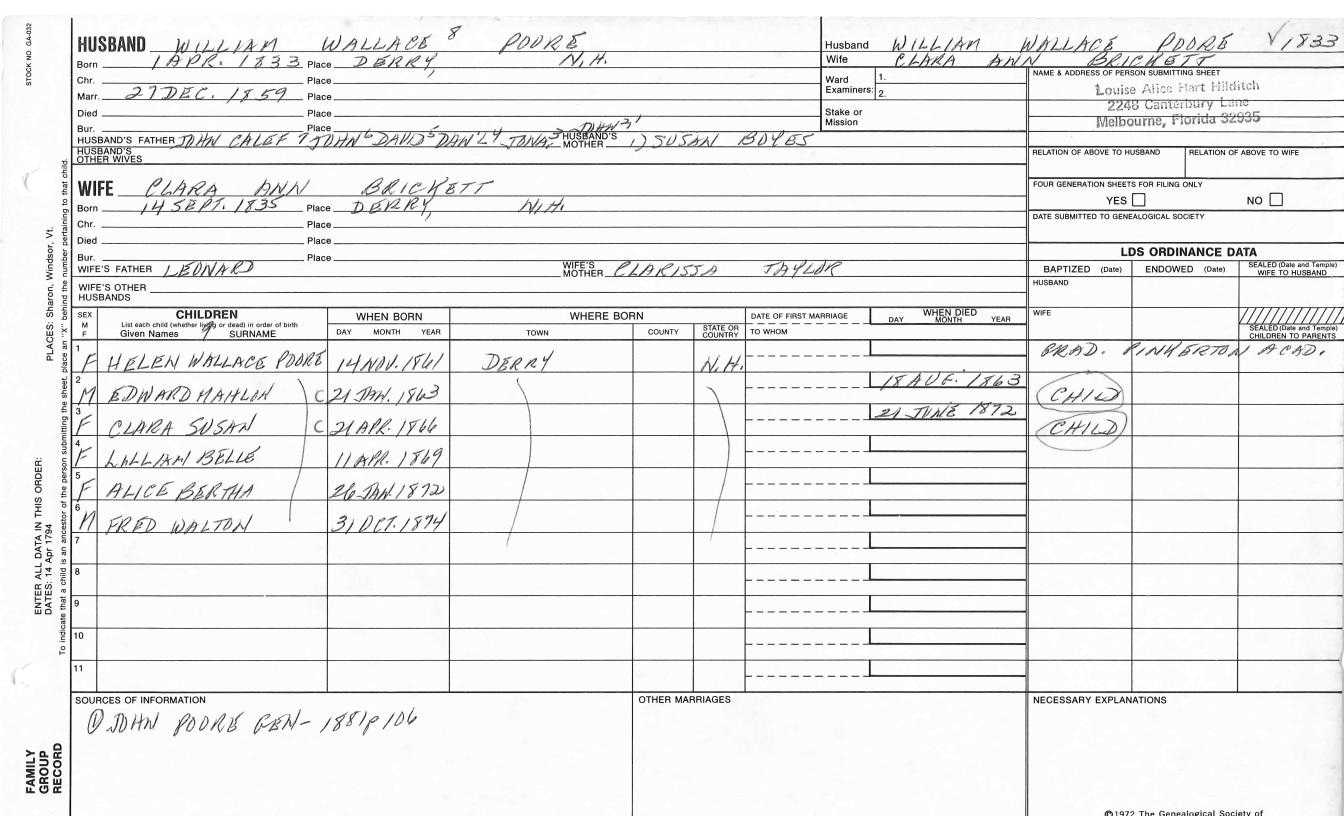 STOCK NO. GA-032
HUSBAND WILLIAM WALLACE 8 POORE
Born 1 APR. 1833 Place DERRY, N.H.
Chr. Place
Marr. 27 DEC. 1859 Place
Died Place
Bur. Place
HUSBAND'S FATHER JOHN CALEF 7 JOHN 6 DAVID 5 DAN'L 4 JONA. 3 JOHN 2, 1 HUSBAND'S MOTHER 1) SUSAN BOYES
HUSBAND'S OTHER WIVES
Husband WILLIAM WALLACE POORE √1833
Wife CLARA ANN BRICKETT
Ward Examiners: 1.
2.
Stake or Mission
NAME & ADDRESS OF PERSON SUBMITTING SHEET
Louise Alice Hart Hilditch
2248 Canterbury Lane
Melbourne, Florida 32935
RELATION OF ABOVE TO HUSBAND RELATION OF ABOVE TO WIFE
FOUR GENERATION SHEETS FOR FILING ONLY
YES NO
DATE SUBMITTED TO GENEALOGICAL SOCIETY
WIFE CLARA ANN BRICKETT
Born 14 SEPT. 1835 Place DERRY, N.H.
Chr. Place
Died Place
Bur. Place
WIFE'S FATHER LEONARD WIFE'S MOTHER CLARISSA TAYLOR
WIFE'S OTHER HUSBANDS
LDS ORDINANCE DATA
BAPTIZED (Date) ENDOWED (Date) SEALED (Date and Temple) WIFE TO HUSBAND
HUSBAND
WIFE
SEALED (Date and Temple) CHILDREN TO PARENTS
SEX M F
CHILDREN
List each child (whether living or dead) in order of birth
Given Names 9 SURNAME
WHEN BORN
DAY MONTH YEAR
WHERE BORN
TOWN COUNTY STATE OR COUNTRY
DATE OF FIRST MARRIAGE
TO WHOM
WHEN DIED
DAY MONTH YEAR
1 F HELEN WALLACE POORE 14 NOV. 1861 DERRY N.H. GRAD. PINKERTON ACAD.
2 M EDWARD MAHLON C 21 JAN. 1863 18 AUG. 1863 CHILD
3 F CLARA SUSAN C 21 APR. 1866 21 JUNE 1872 CHILD
4 F LILLIAN BELLE 11 APR. 1869
5 F ALICE BERTHA 26 JAN. 1872
6 M FRED WALTON 31 OCT. 1874
7
8
9
10
11
SOURCES OF INFORMATION
① JOHN POORE GEN- 1881 p 106
OTHER MARRIAGES
NECESSARY EXPLANATIONS
©1972 The Genealogical Society of
FAMILY GROUP RECORD
ENTER ALL DATA IN THIS ORDER:
DATES: 14 Apr 1794
PLACES: Sharon, Windsor, Vt.
To indicate that a child is an ancestor of the person submitting the sheet, place an "X" behind the number pertaining to that child.